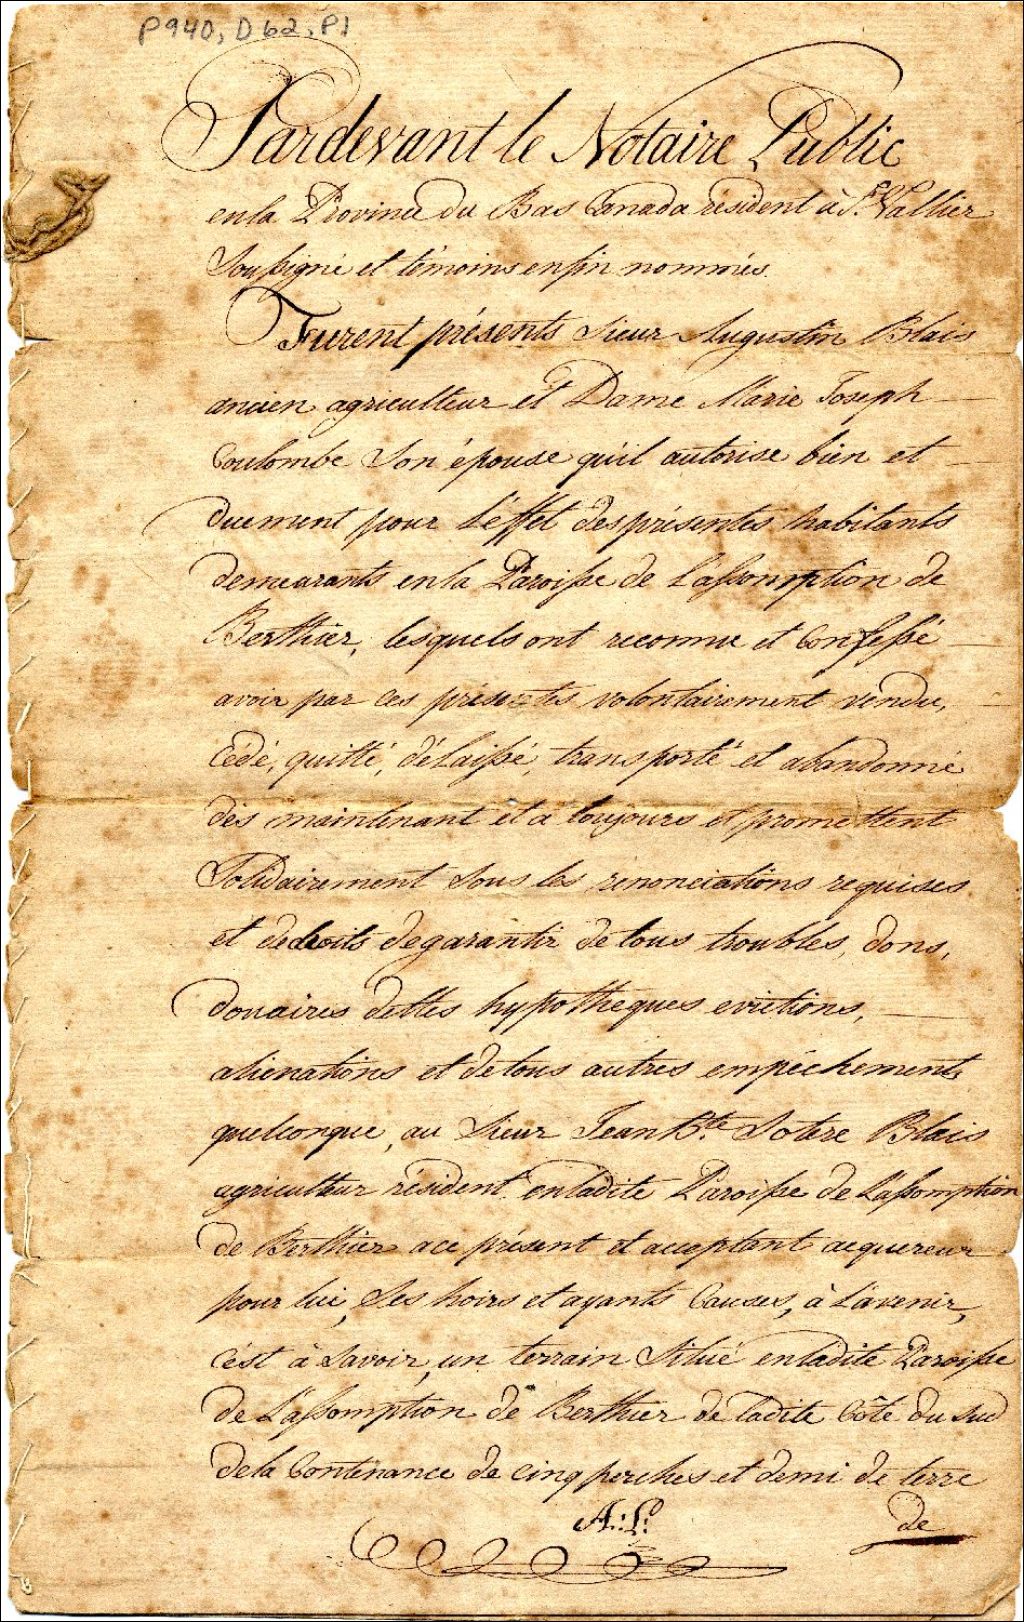 P940, D62, P1
Pardevant le Notaire Public
en la Province du Bas Canada résident à St. Vallier
Soussigné et témoins enfin nommés.
Furent présents Sieur Augustin Blais
ancien agriculteur et Dame Marie Joseph
Coulombe Son épouse qu'il autorise bien et
duement pour L'éffet des présentes habitants
demeurants en la Paroisse de L'assomption de
Berthier, lesquels ont reconnu et Confessé
avoir par ces présentes volontairement vendu,
Cédé, quitté, délaissé, transporté et abandonné
dès maintenant et a toujours et promettent
Solidairement Sous les renonciations requises
et de droits de garantir de tous troubles, dons,
douaires dettes hypotheques evictions,
alienations et de tous autres empéchements
quelconque, au Sieur Jean Bte. Sotere Blais
agriculteur résident en ladite Paroisse de L'assomption
de Berthier a ce présent et acceptant acquereur
pour lui, Ses hoirs et ayants Causes, à L'avenir,
C'ést à Savoir, un terrain Situé en ladite Paroisse
de L'assomption de Berthier de ladite Côté du Sud
de la Contenance de cinq perches et demi de terre
A:L:
de